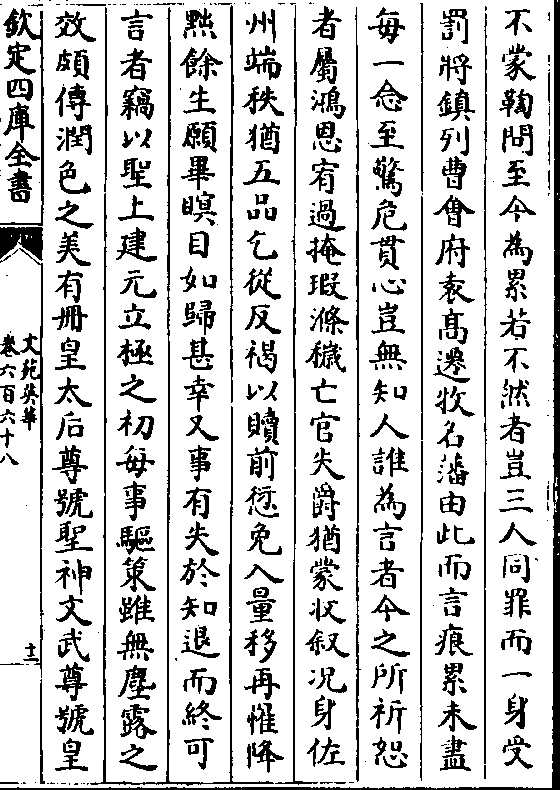 不蒙鞠問至今為累若不然者豈三人同罪而一身受
罰將鎮列曹㑹府袁髙遷牧名藩由此而言痕累未盡
每一念至驚危貫心豈無知人誰為言者今之所祈恕
者屬鴻恩宥過掩瑕滌穢亡官失爵猶蒙收叙况身佐
州端秩猶五品乞從反褐以贖前愆免入量移再懼降
㸃餘生願畢瞑目如歸甚幸又事有失於知退而終可
言者竊以聖上建元立極之初每事驅策雖無塵露之
效頗傳潤色之美有冊皇太后尊號聖神文武尊號皇
欽定四庫全書
文苑英華
卷六百六十八
十三